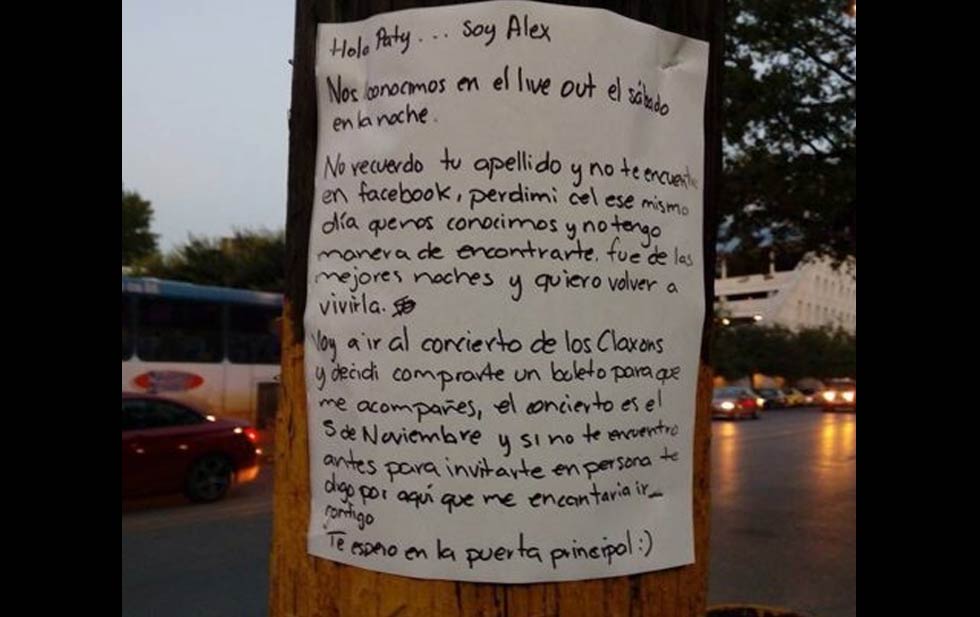 Hola Paty... Soy Alex
Nos conocimos en el live out el sábado
en la noche.
No recuerdo tu apellido y no te encuentro
en facebook, perdi mi cel ese mismo
día que nos conocimos y no tengo
manera de encontrarte. fue de las
mejores noches y quiero volver a
vivirla.
Voy a ir al concierto de los Claxons
y decidi comprarte un boleto para que
me acompañes, el concierto es el
5 de Noviembre y si no te encuentro
antes para invitarte en persona te
digo por aquí que me encantaria ir...
contigo
Te espero en la puerta principal :)